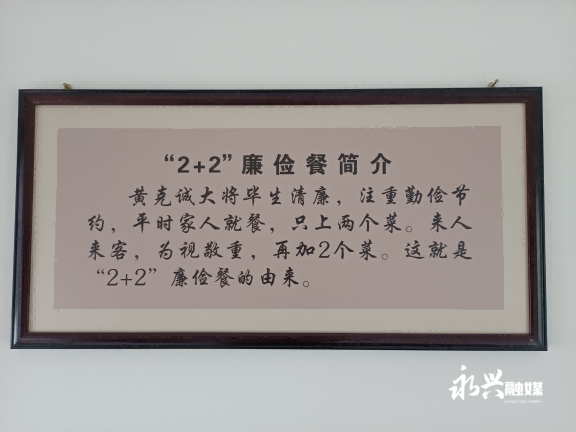 “2+2”廉俭餐简介
黄克诚大将毕生清廉，注重勤俭节
约，平时家人就餐，只上两个菜。来人
来客，为视敬重，再加2个菜。这就是
“2+2”廉俭餐的由来。
永兴融媒